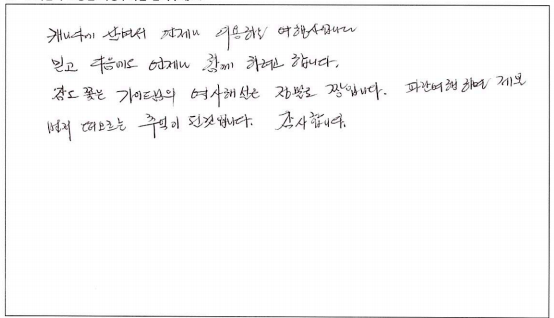 캐나다에 살면서 언제나 이용하는 여행사입니다
믿고 다음에도 언제나 함께 하려고 합니다.
가이드님의 역사해설은 정말로 짱입니다. 하면 제일
먼저 떠오르는 추억이 된것입니다. 감사합니다.